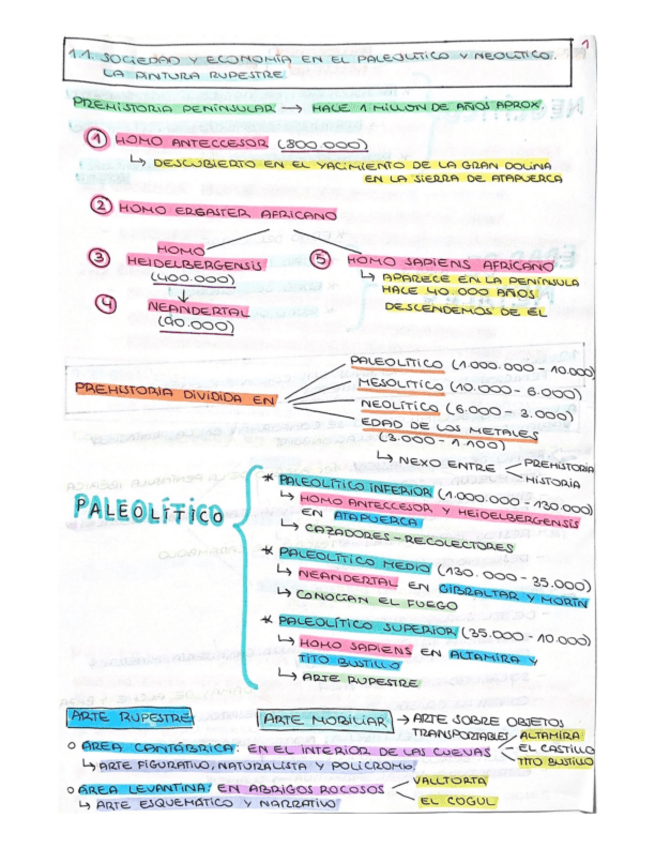 1
1.1. SOCIEDAD Y ECONOMÍA EN EL PALEOLÍTICO Y NEOLÍTICO.
LA PINTURA RUPESTRE
PREHISTORIA PENINSULAR → HACE 1 MILLON DE AÑOS APROX.
① HOMO ANTECCESOR (800.000)
↳ DESCUBIERTO EN EL YACIMIENTO DE LA GRAN DOLINA
EN LA SIERRA DE ATAPUERCA
② HOMO ERGASTER AFRICANO
③ HOMO
HEIDELBERGENSIS
(400.000)
↓
④ NEANDERTAL
(90.000)
⑤ HOMO SAPIENS AFRICANO
↳ APARECE EN LA PENÍNSULA
HACE 40.000 AÑOS
DESCENDEMOS DE ÉL
PREHISTORIA DIVIDIDA EN
PALEOLÍTICO (1.000.000 - 10.000)
MESOLITICO (10.000 - 6.000)
NEOLÍTICO (6.000 - 3.000)
EDAD DE LOS METALES
(3.000 - 1.100)
↳ NEXO ENTRE
PREHISTORIA
HISTORIA
PALEOLÍTICO
* PALEOLÍTICO INFERIOR (1.000.000 - 130.000)
↳ HOMO ANTECCESOR Y HEIDELBERGENSIS
EN ATAPUERCA
↳ CAZADORES - RECOLECTORES
* PALEOLÍTICO MEDIO (130.000 - 35.000)
↳ NEANDERTAL EN GIBRALTAR Y MORÍN
↳ CONOCÍAN EL FUEGO
* PALEOLÍTICO SUPERIOR (35.000 - 10.000)
↳ HOMO SAPIENS EN ALTAMIRA Y
TITO BUSTILLO
↳ ARTE RUPESTRE
ARTE RUPESTRE
ARTE MOBILIAR → ARTE SOBRE OBJETOS
TRANSPORTABLES
○ ÁREA CANTÁBRICA: EN EL INTERIOR DE LAS CUEVAS
ALTAMIRA
EL CASTILLO
TITO BUSTILLO
↳ ARTE FIGURATIVO, NATURALISTA Y POLICROMO.
○ ÁREA LEVANTINA: EN ABRIGOS ROCOSOS
VALLTORTA
EL COGUL
↳ ARTE ESQUEMÁTICO Y NARRATIVO